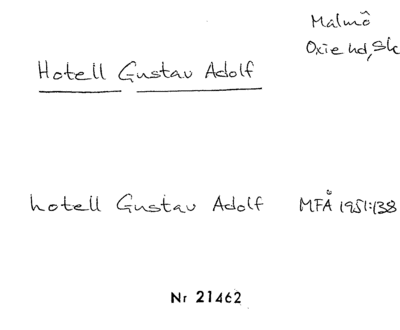 Malmö
Oxie hd, Sk
Hotell Gustav Adolf
hotell Gustav Adolf MFÅ 1951:138
Nr 21462